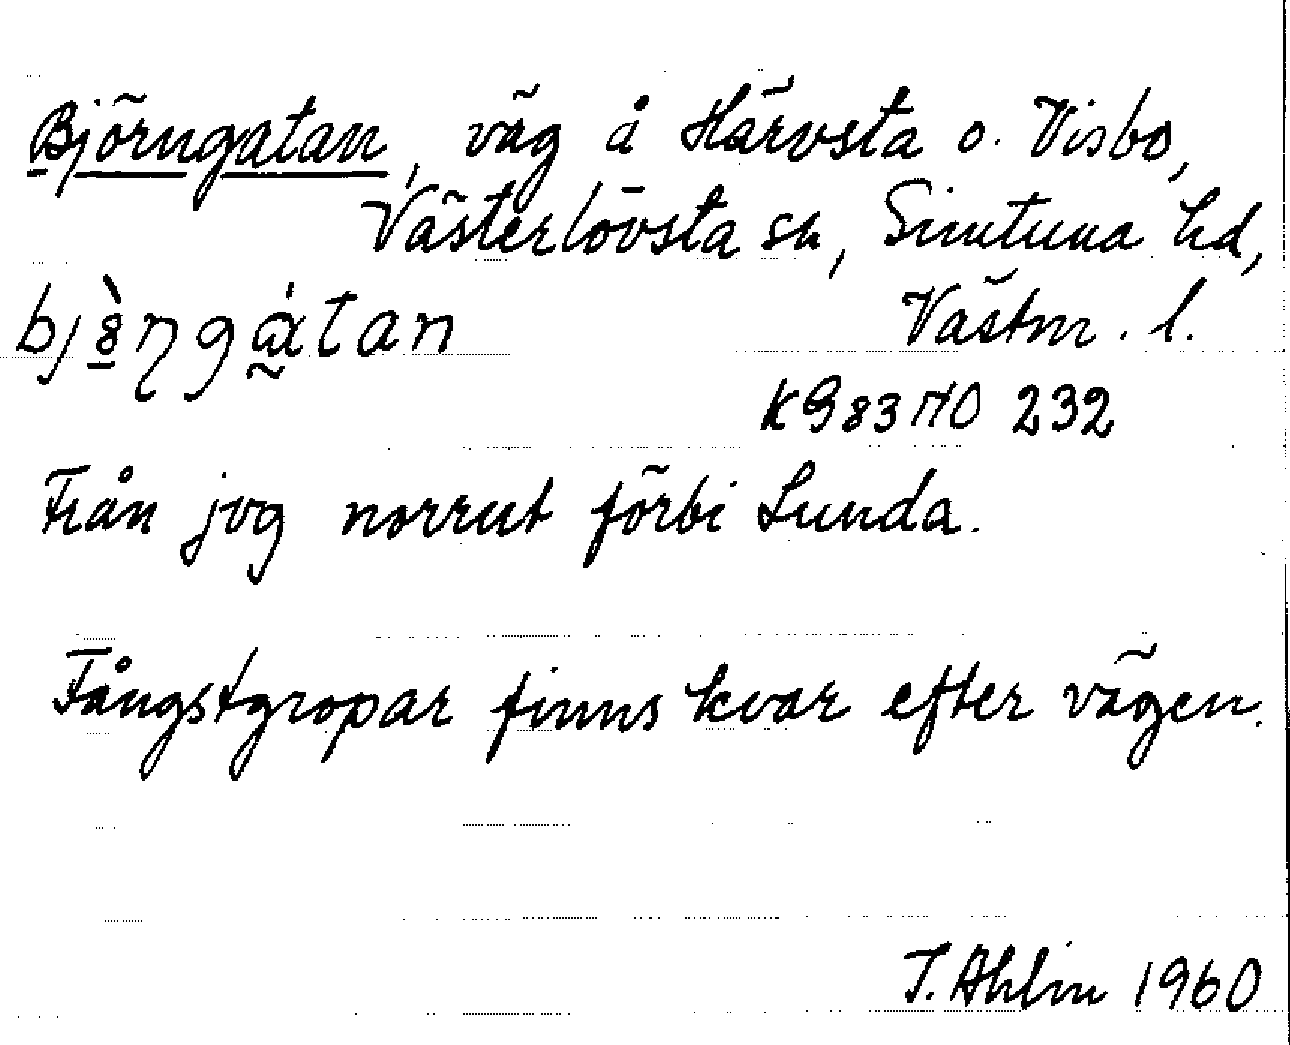 Björngatan, väg å Härvsta o. Visbo,
Västerlövsta sn, Simtuna hd,
Västm. l.
KG83 NO 232
Från jvg norrut förbi Lunda.
Fångstgropar finns kvar efter vägen.
T. Ahlin 1960